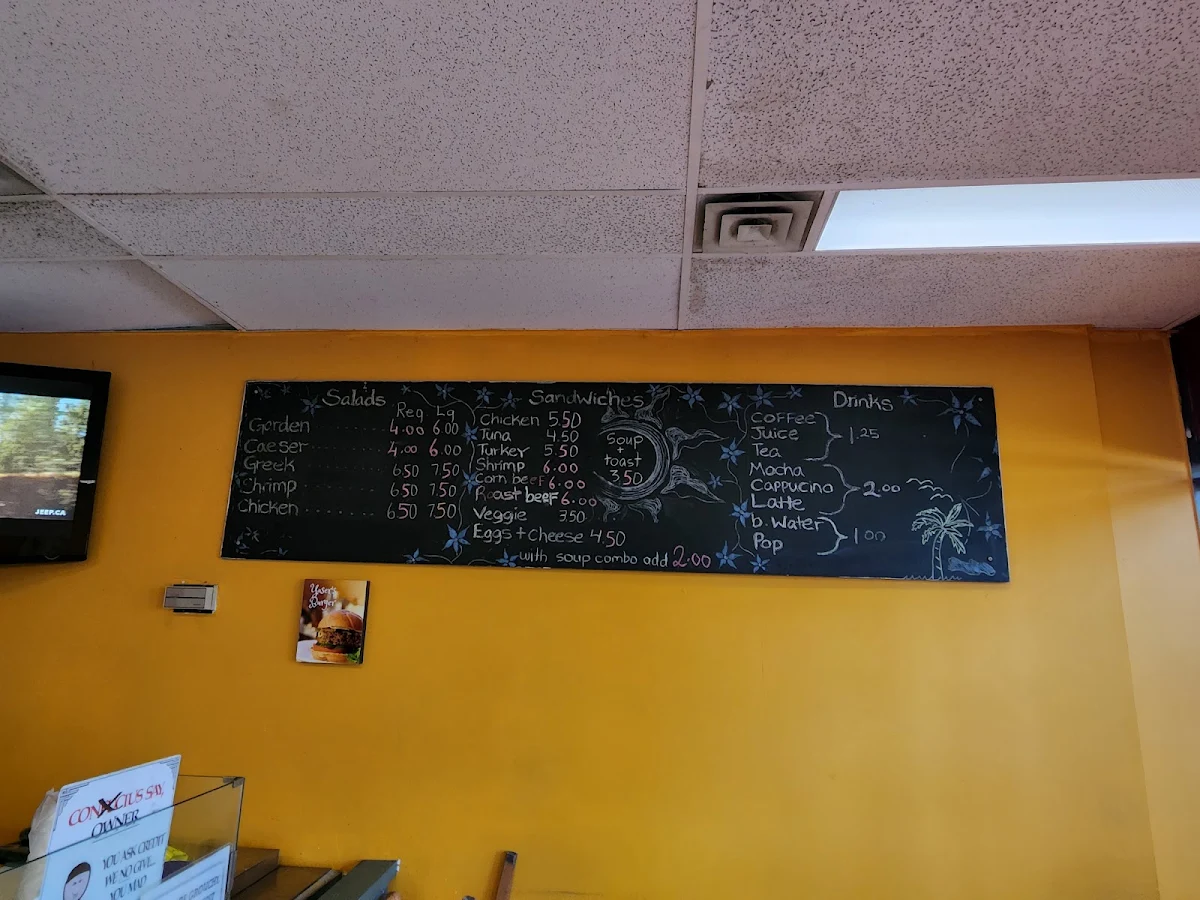 Salads
Reg Lg
Garden ........ 4.00 6.00
Caeser ........ 4.00 6.00
Greek ........ 6.50 7.50
Shrimp ........ 6.50 7.50
Chicken ........ 6.50 7.50
Sandwiches
Chicken 5.50
Tuna 4.50
Turkey 5.50
Shrimp 6.00
Corn beef 6.00
Roast beef 6.00
Veggie 3.50
Eggs + cheese 4.50
with soup combo add 2.00
Soup
+
toast
3.50
Drinks
Coffee
Juice
Tea
1.25
Mocha
Cappucino
Latte
2.00
b. Water
Pop
1.00
JEEP.CA
Burger
SAY,
OWNER
YOU ASK CREDIT
WE NO GIVE...
YOU MAD